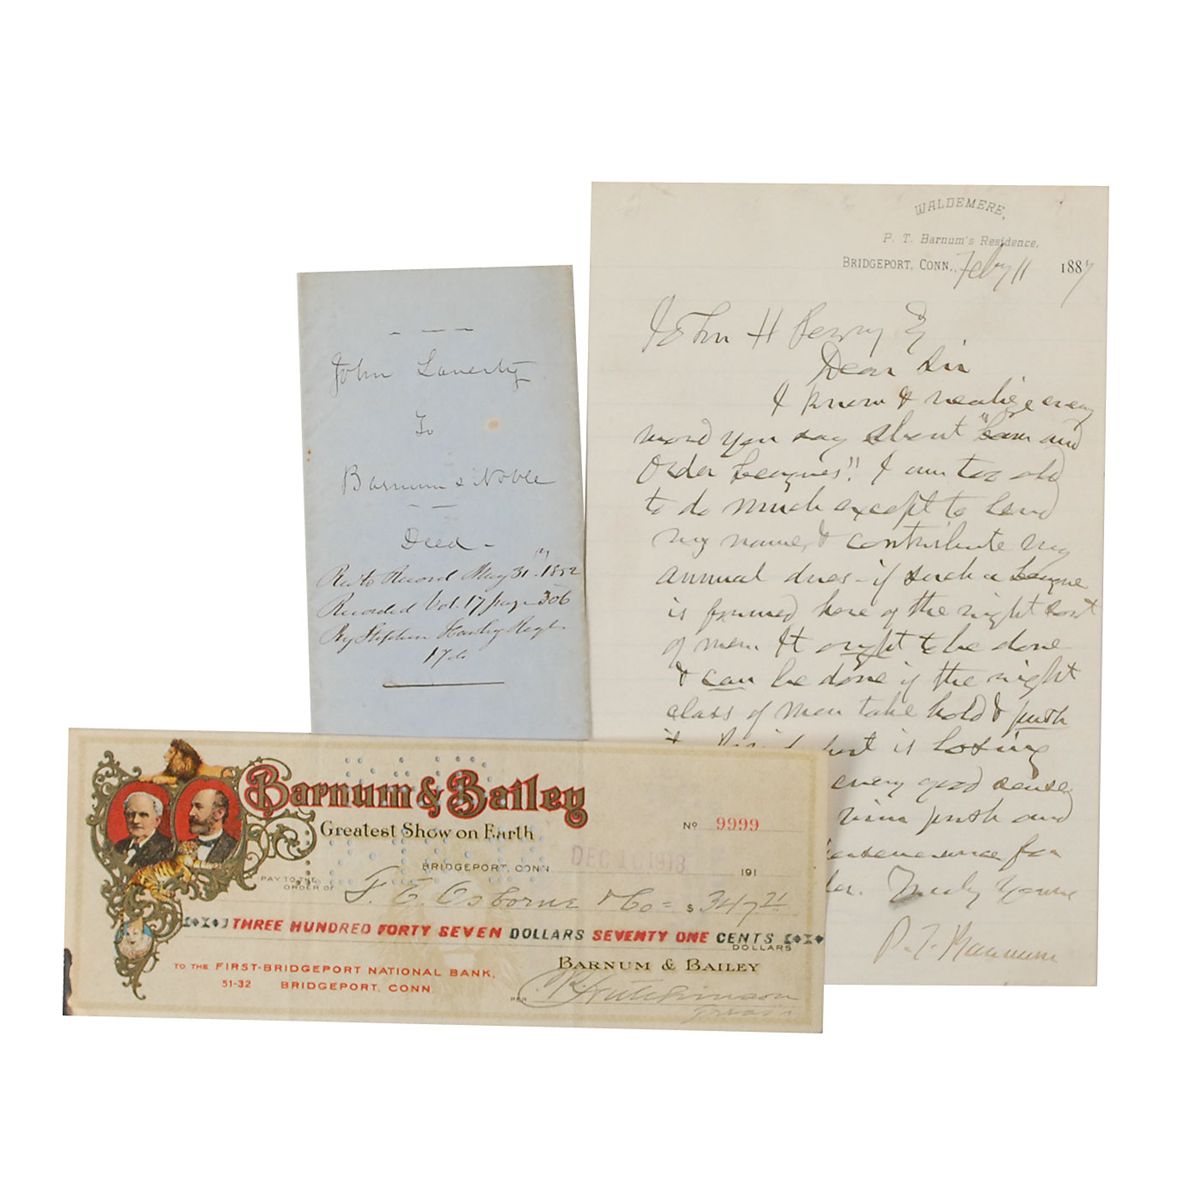 John Laverty
To
Barnum & Noble
Deed -
Rec'd to Record May 31st 1852
Recorded Vol. 17 page 306
By Stephen Hawley Regr
WALDEMERE,
P. T. Barnum's Residence,
BRIDGEPORT, CONN., Feby 11 1887
John H Perry Esq
Dear Sir
I know & realize every
word you say about "Law and
Order Leagues". I am too old
to do much except to lend
my name, & contribute my
annual dues - if such a League
is formed here of the right sort
of men. It ought to be done
& can be done if the right
class of men take hold & push
it. Bridgeport is losing
every good sense
push and
for
Truly Yours
P. T. Barnum
Barnum & Bailey
Greatest Show on Earth
No 9999
BRIDGEPORT, CONN. DEC 1913 191
PAY TO THE
ORDER OF F. E. Osborne & Co = $ 347 21
THREE HUNDRED FORTY SEVEN DOLLARS SEVENTY ONE CENTS
DOLLARS
TO THE FIRST-BRIDGEPORT NATIONAL BANK,
51-32 BRIDGEPORT, CONN.
BARNUM & BAILEY
PER C. R. Hutchinson
Treas